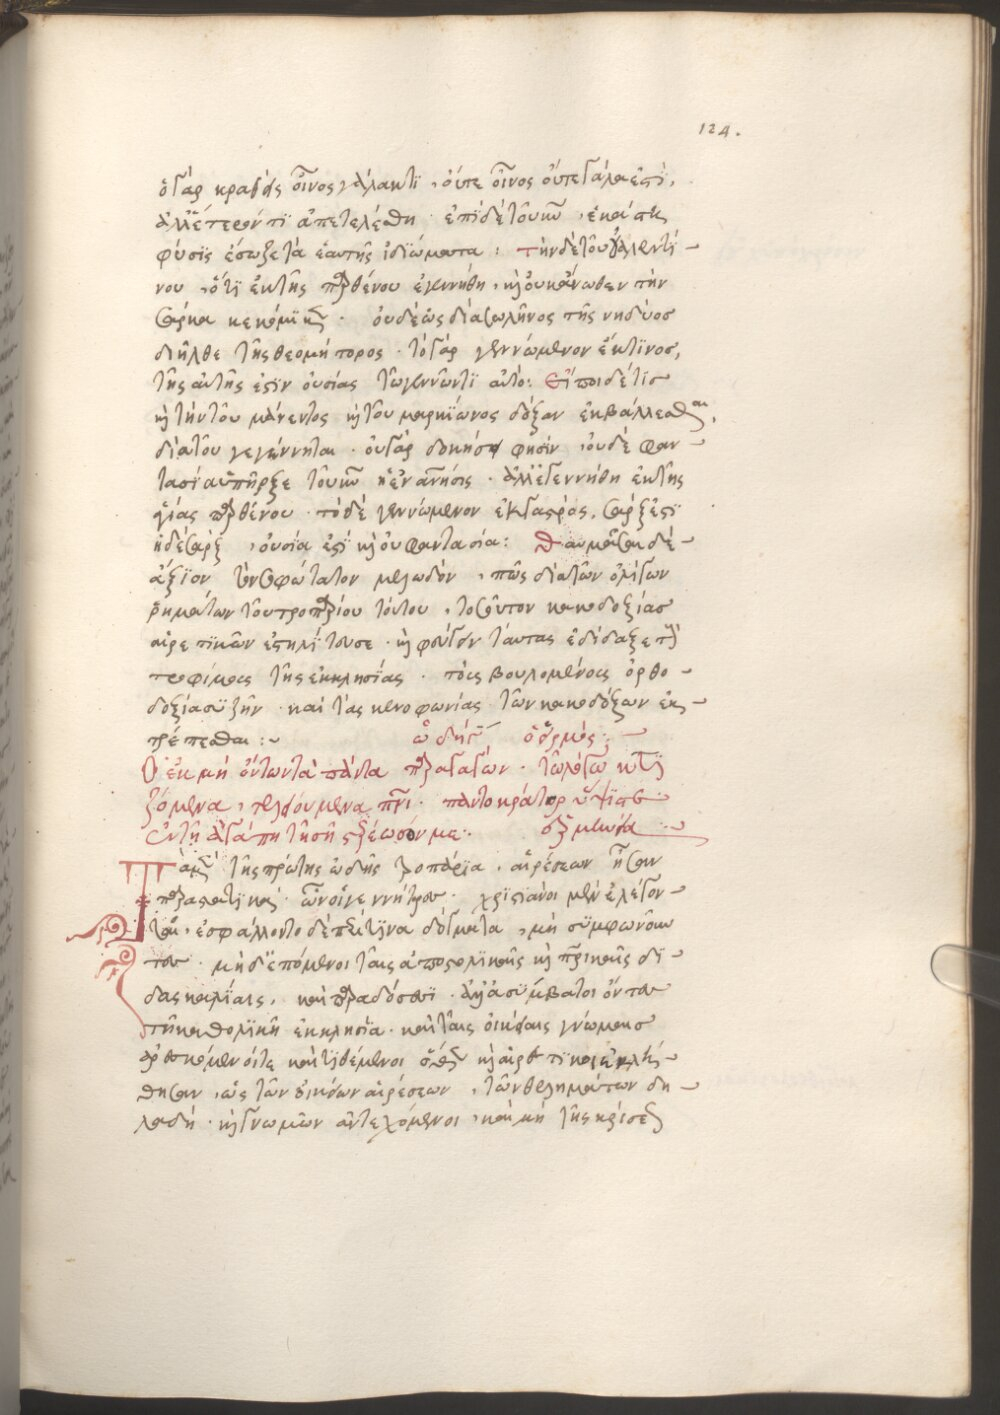 124.
ὁ γὰρ κραθεὶς οἶνος γάλακτι, οὔτε οἶνος οὔτε γάλα ἐστὶ,
ἀλλ' ἕτερόν τι ἀπετελέσθη. ἐπὶ δὲ τοῦ κυ, ἑκάστη
φύσις ἔσωζε τὰ ἑαυτῆς ἰδιώματα: τὴν δὲ τοῦ οὐαλεντί-
νου, ὅτι ἐκ τῆς παρθένου ἐγεννήθη, καὶ οὐκ ἄνωθεν τὴν
σάρκα κεκόμικεν. οὐδὲ ὡς διὰ σωλῆνος τῆς νηδύος
διῆλθε τῆς θεομήτορος. τὸ γὰρ γεννώμενον ἔκ τινος,
τῆς αὐτῆς ἐστιν οὐσίας τῶ γεννῶντι αὐτό: Εἴποι δέ τις
καὶ τὴν τοῦ μάνεντος καὶ τοῦ μαρκίωνος δόξαν ἐκβάλλεσθαι,
διὰ τοῦ γεγέννηται. οὐ γὰρ δοκήσει φησὶν, οὐδὲ φαν-
τασία ὑπῆρξε τοῦ κυ ἡ ἐνανησις. ἀλλ' ἐγεννήθη ἐκ τῆς
ἁγίας παρθένου. τὸ δὲ γεννώμενον ἐκ γαστρὸς, σάρξ ἐστι
ἡ δὲ σάρξ, οὐσία ἐστὶ καὶ οὐ φαντασία: Θαυμάσαι δὲ-
ἄξιον τὸν σοφώτατον μελωδὸν, πῶς διὰ τῶν ὀλίγων
ῥημάτων τοῦ τροπαρίου τούτου, τοσοῦτον κακοδοξίας
αἱρετικῶν ἐστηλίτευσε. καὶ φεύγειν ταύτας ἐδίδαξε τοὺς
τροφίμους τῆς ἐκκλησίας. τοὺς βουλομένους ὀρθο-
δοξίᾳ συζῆν. καὶ τὰς κενοφωνίας τῶν κακοδόξων ἐκ-
τρέπεσθαι:~ ὠδῆς γ ὁ εἱρμός:-
Ὁ ἐκ μὴ ὄντων τὰ πάντα παραγαγών. τῶ λόγω κτι
ζόμενα, τελειούμενα πνι. παντοκράτορ ὕψιστε
ἐν τῆ ἀγάπη τῆ σῆ στερέωσόν με:
Παρὰ τῆς πρώτης ὠδῆς τροπάρια, αἱρέσεων ἦσαν
παραστατικά. ὧν οἱ γεννήτορες. χριστιανοὶ μὲν ἐλέγον-
το. ἐσφάλλοντο δὲ περί τινα δόγματα, μὴ συμφωνοῦν
τες. μὴ δ' ἑπόμενοι ταῖς ἀποστολικαῖς καὶ πρικαῖς δι-
δασκαλίαις, καὶ παραδόσεσι. ἀλλ' ἀσύμβατοι ὄντες
τῆ καθολικῆ ἐκκλησία. καὶ ταῖς οἰκείαις γνώμαις
ἀρεσκόμενοί τε καὶ τιθέμενοι καὶ αἱρετικοὶ ἐκλή-
θησαν, ὡς τῶν οἰκείων αἱρέσεων, τῶν θελημάτων δη-
λαδὴ. καὶ γνωμῶν ἀντεχόμενοι, καὶ μὴ τῆς κρίσεως